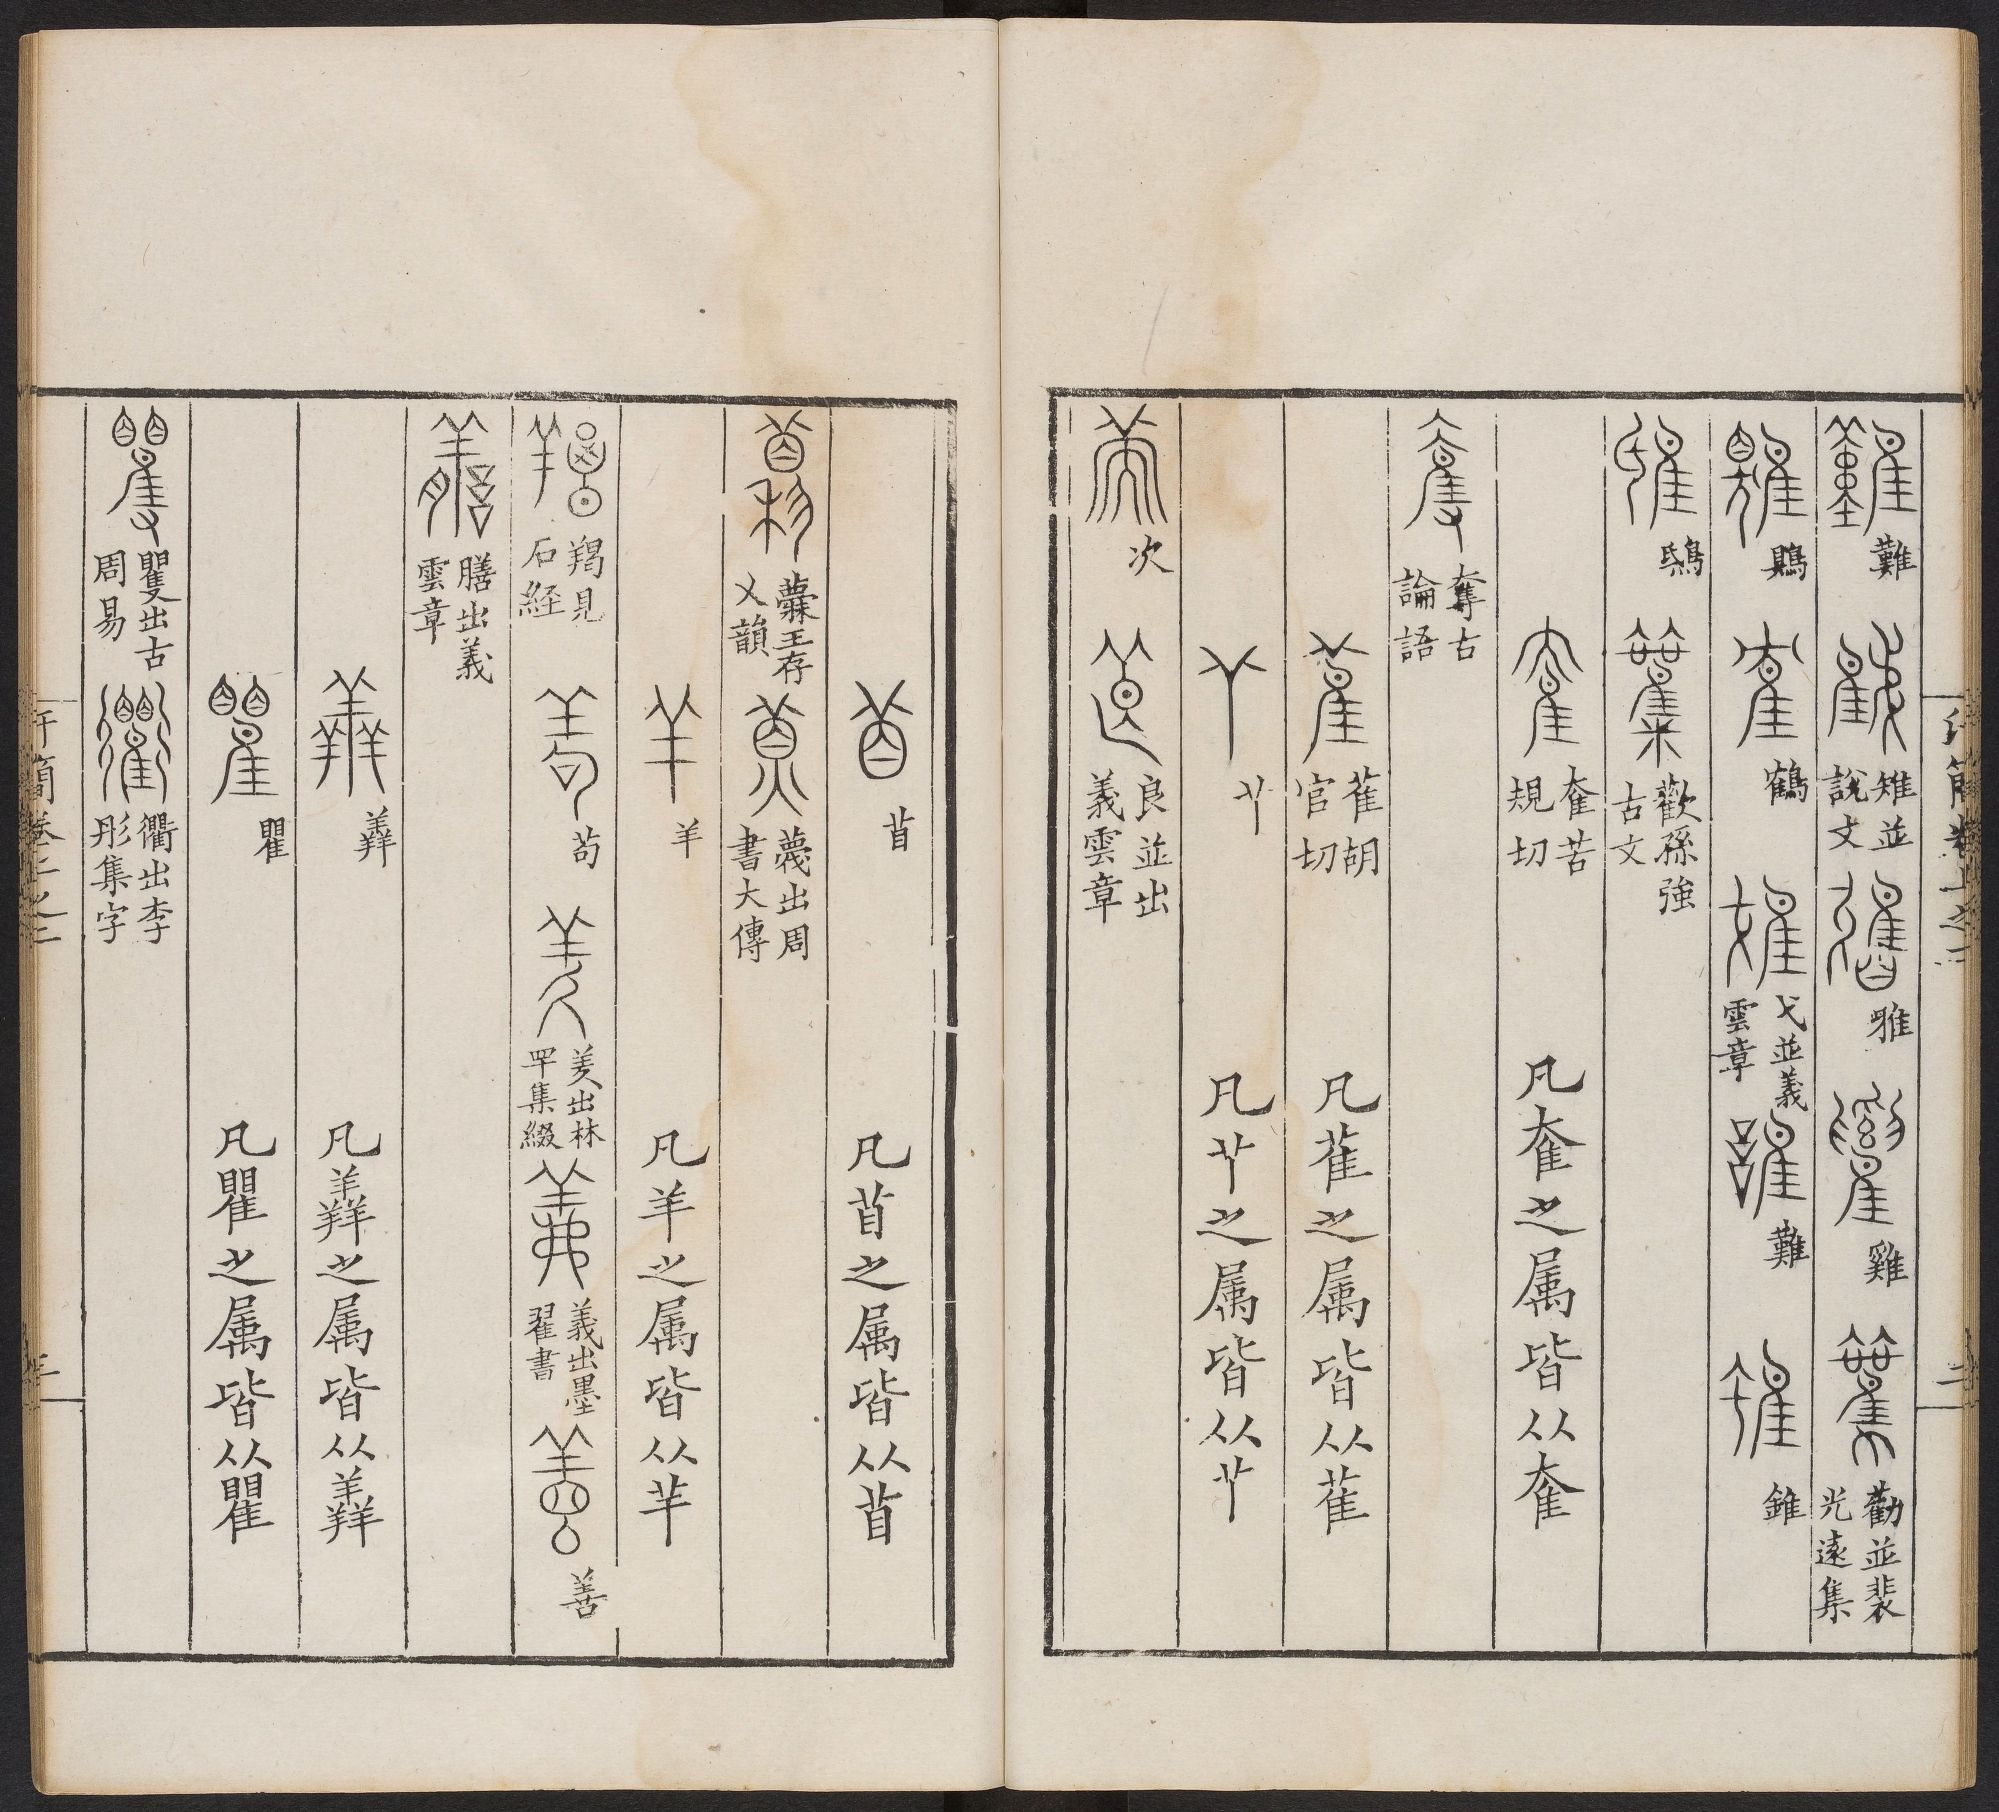 難 雉並說文 雅 雞 勸並裴光遠集
鶪 鶴 弋並義雲章 難 錐
鴟 歡孫強古文
奞苦規切 凡奞之属皆从奞
奪古論語
萑胡官切 凡萑之属皆从萑
𦫳 凡𦫳之属皆从𦫳
次 良並出義雲章
苜 凡苜之属皆从苜
蘼王存乂韻 蔑出周書大傳
羊 凡羊之属皆从羊
羯見石経 苟 美出林罕集綴 義出墨翟書 善
膳出義雲章
羴 凡羴之属皆从羴
瞿 凡瞿之属皆从瞿
矍出古周易 衢出李彤集字
汗簡卷上之二